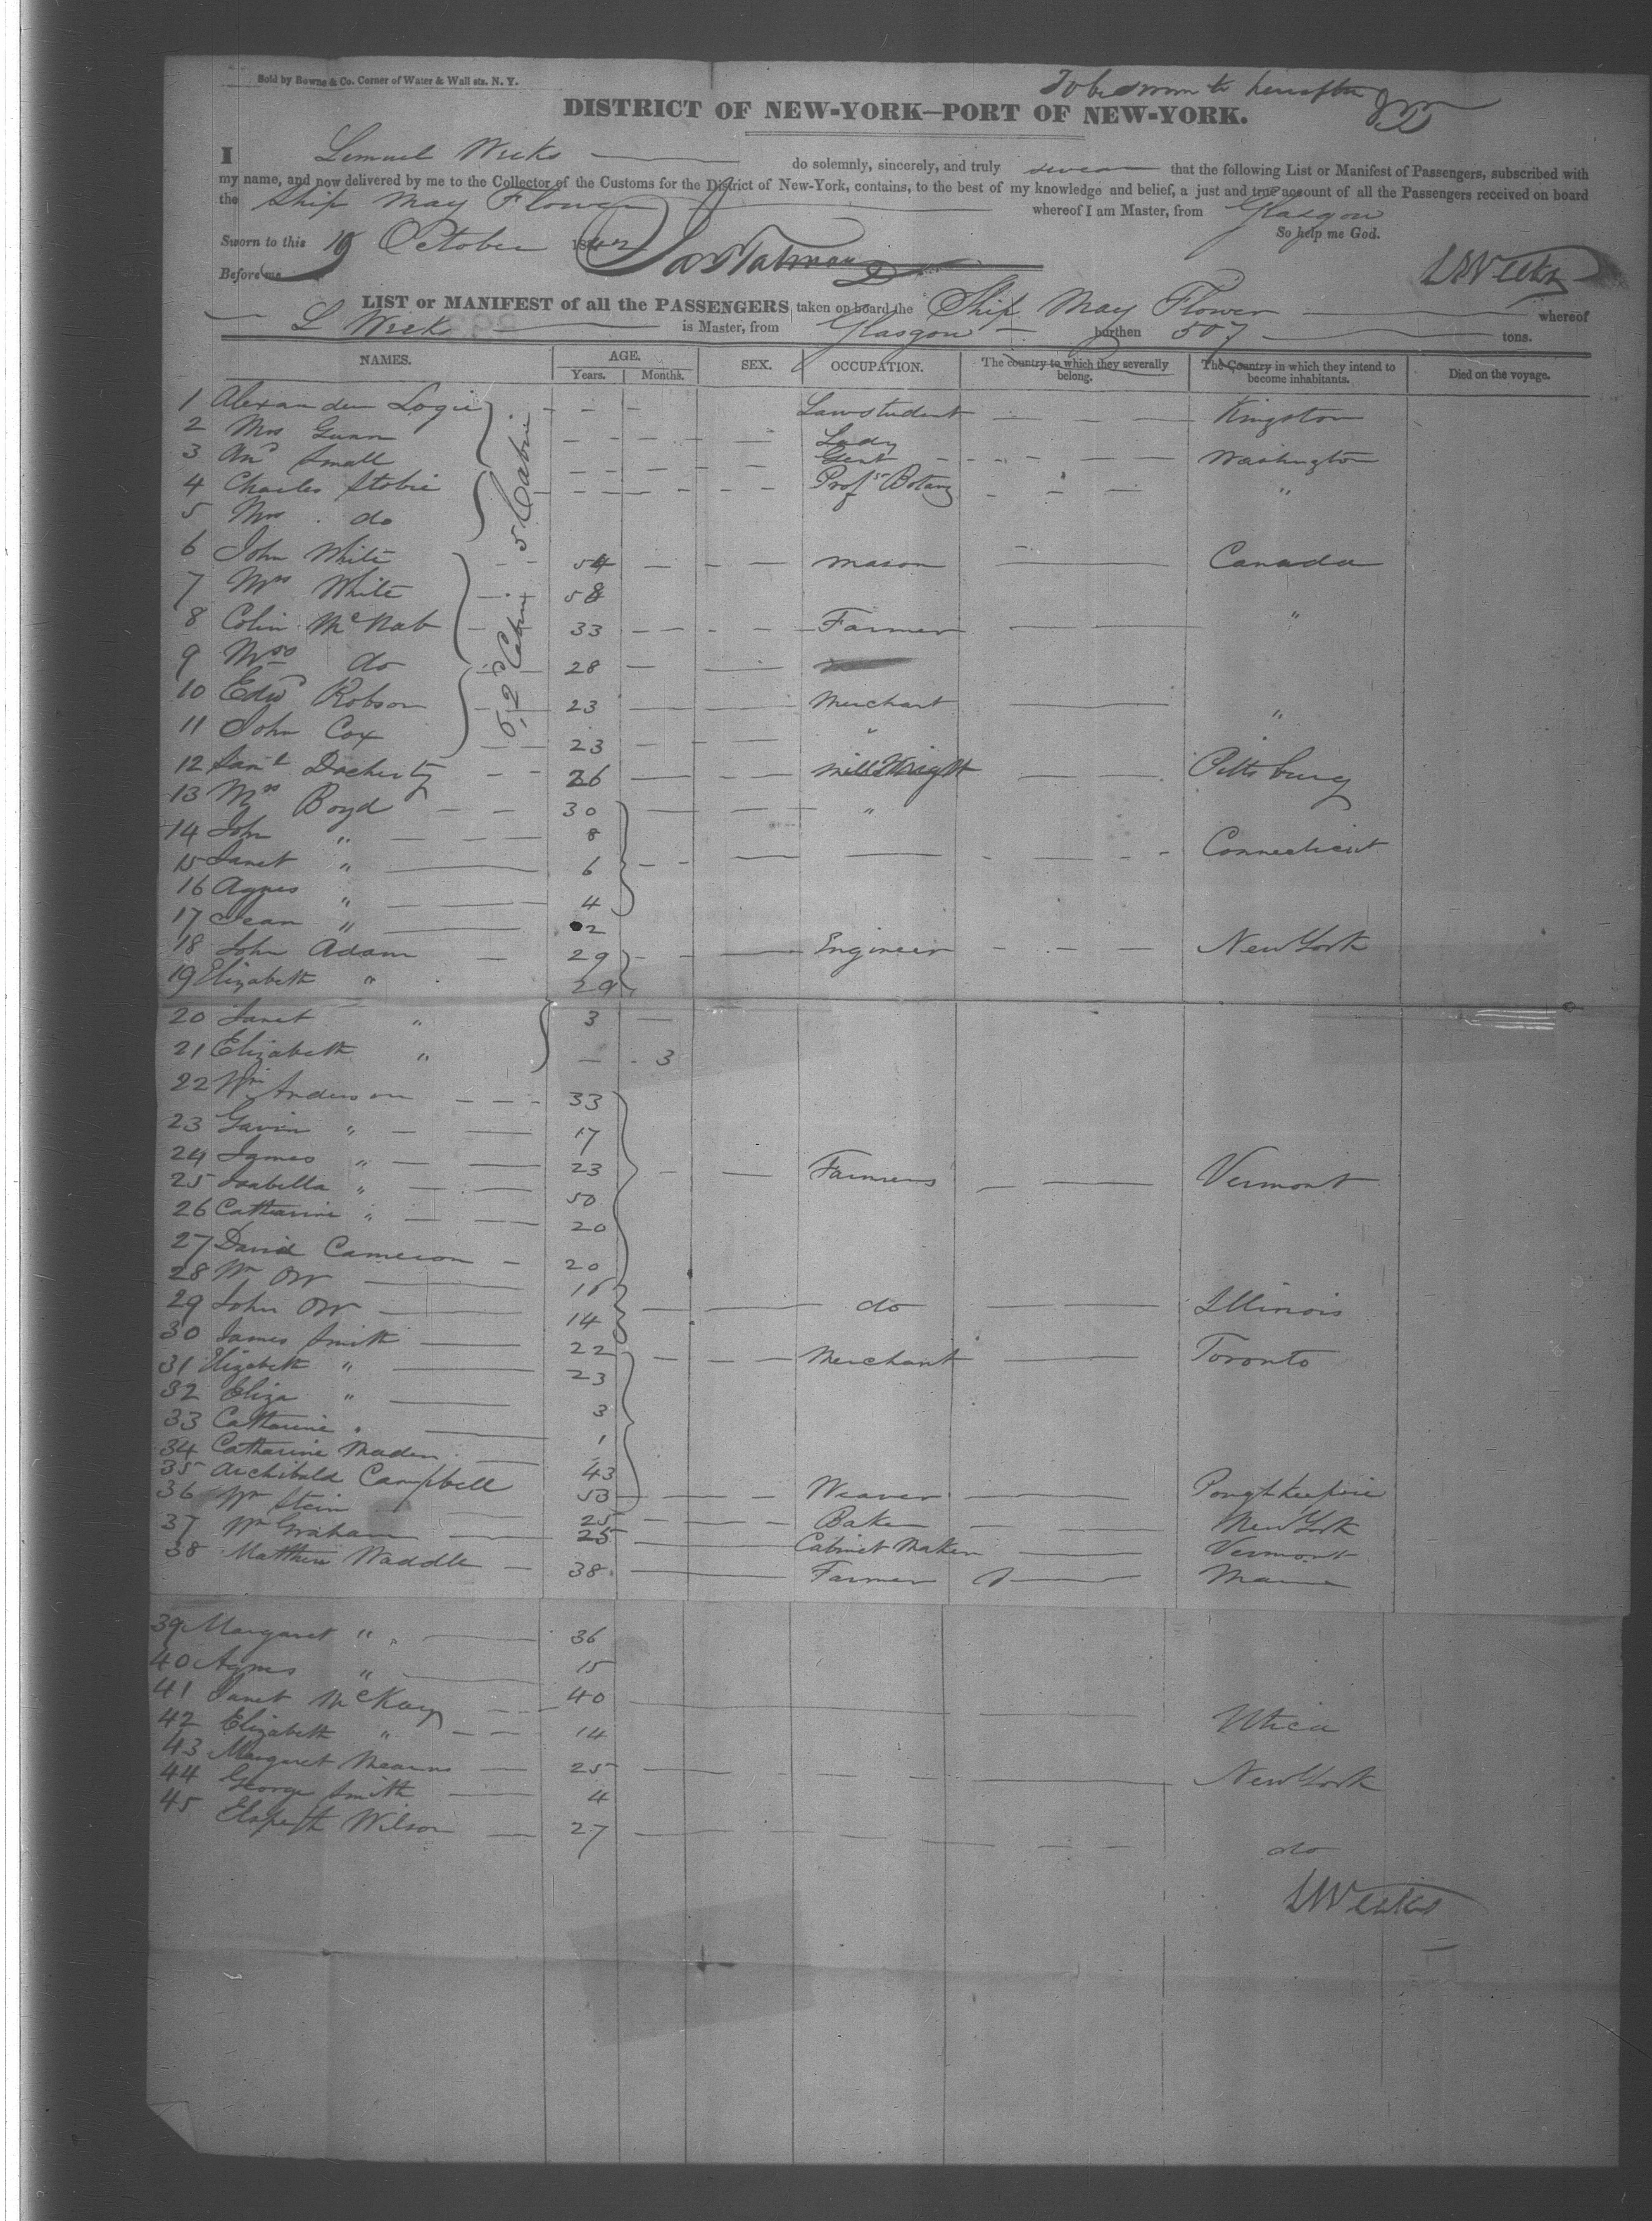 Sold by Bowne & Co. Corner of Water & Wall sts. N. Y.
To be sworn to hereafter
DISTRICT OF NEW-YORK—PORT OF NEW-YORK.
I Lemuel Weeks do solemnly, sincerely, and truly swear that the following List or Manifest of Passengers, subscribed with
my name, and now delivered by me to the Collector of the Customs for the District of New-York, contains, to the best of my knowledge and belief, a just and true account of all the Passengers received on board
the Ship May Flower whereof I am Master, from Glasgow
Sworn to this 19 October 1842 So help me God.
Before me L Weeks
LIST or MANIFEST of all the PASSENGERS taken on board the Ship May Flower whereof
L Weeks is Master, from Glasgow burthen 507 tons.
NAMES. AGE. SEX. OCCUPATION. The country to which they severally belong. The Country in which they intend to become inhabitants. Died on the voyage.
Years. Months.
1 Alexander Logie Law student Kingston
2 Mrs Gunn Lady
3 Small Gent Washington
4 Charles Stobie Profsr Botany "
5 Mrs do
5 Cabin
6 John White 54 mason Canada
7 Mrs White 58
8 Colin McNab 33 Farmer "
9 Mrs do 28
10 Edwd Robson 23 Merchant "
11 John Cox 23 "
6, 2d Cabin
12 Docherty 26 Millwright Pittsburg
13 Mrs Boyd 30 "
14 John " 8 Connecticut
15 Janet " 6
16 Agnes " 4
17 Jean " 2
18 John Adam 29 Engineer New York
19 Elizabeth " 29
20 Janet " 3
21 Elizabeth " 3
22 Wm Anderson 33
23 Gavin " 17
24 James " 23 Farmers Vermont
25 Isabella " 50
26 Catharine " 20
27 David Cameron 20
28 Wm Orr 16
29 John Orr 14 do Illinois
30 James Smith 22 Merchant Toronto
31 Elizabeth " 23
32 Eliza " 3
33 Catharine " 1
34 Catharine Maden 43
35 Archibald Campbell 53 Weaver Poughkeepsie
36 Wm Stein 25 Baker New York
37 Wm Graham 25 Cabinet Maker Vermont
38 Matthew Waddle 38 Farmer Maine
39 Margaret " 36
40 Agnes " 15
41 Janet McKay 40 Utica
42 Elizabeth " 14
43 Margaret Mearns 25 New York
44 George Smith 4
45 Elspeth Wilson 27 do
L Weeks